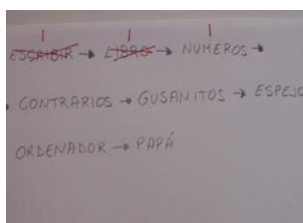 ESCRIBIR → LIBRO → NUMEROS →
CONTRARIOS → GUSANITOS → ESPEJO
ORDENADOR → PAPÁ